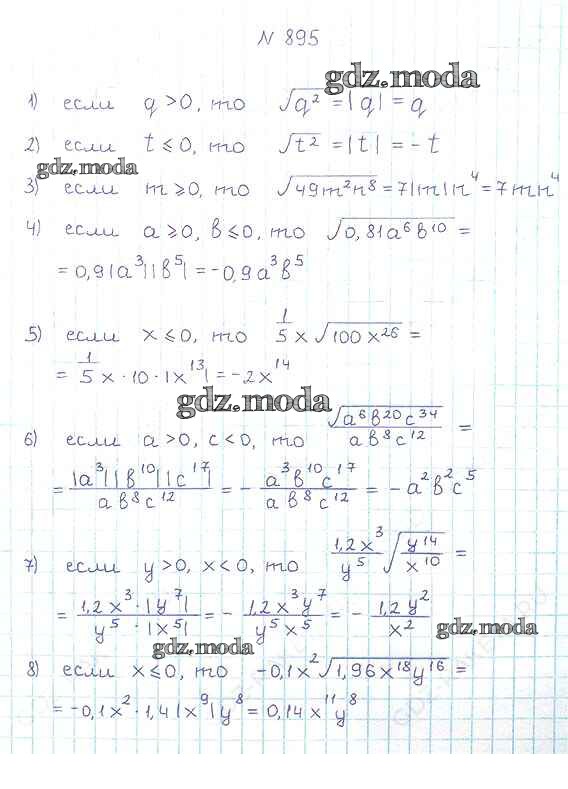 N 895
gdz.moda
1) если q > 0, то √q² = |q| = q
2) если t ⩽ 0, то √t² = |t| = -t
gdz.moda
3) если m ⩾ 0, то √49m²n⁸ = 7|m|n⁴ = 7mn⁴
4) если a ⩾ 0, в ⩽ 0, то √0,81a⁶в¹⁰ =
= 0,9|a³||в⁵| = -0,9a³в⁵
5) если x ⩽ 0, то 1/5 x √100x²⁶ =
= 1/5 x · 10 · |x¹³| = -2x¹⁴
gdz.moda
6) если a > 0, c < 0, то √a⁶в²⁰c³⁴ / aв⁸c¹² =
= |a³||в¹⁰||c¹⁷| / aв⁸c¹² = - a³в¹⁰c¹⁷ / aв⁸c¹² = -a²в²c⁵
7) если y > 0, x < 0, то 1,2x³/y⁵ √y¹⁴/x¹⁰ =
= 1,2x³ · |y⁷| / y⁵ · |x⁵| = - 1,2x³y⁷ / y⁵x⁵ = - 1,2y² / x²
gdz.moda
gdz.moda
8) если x ⩽ 0, то -0,1x² √1,96x¹⁸y¹⁶ =
= -0,1x² · 1,4|x⁹|y⁸ = 0,14x¹¹y⁸